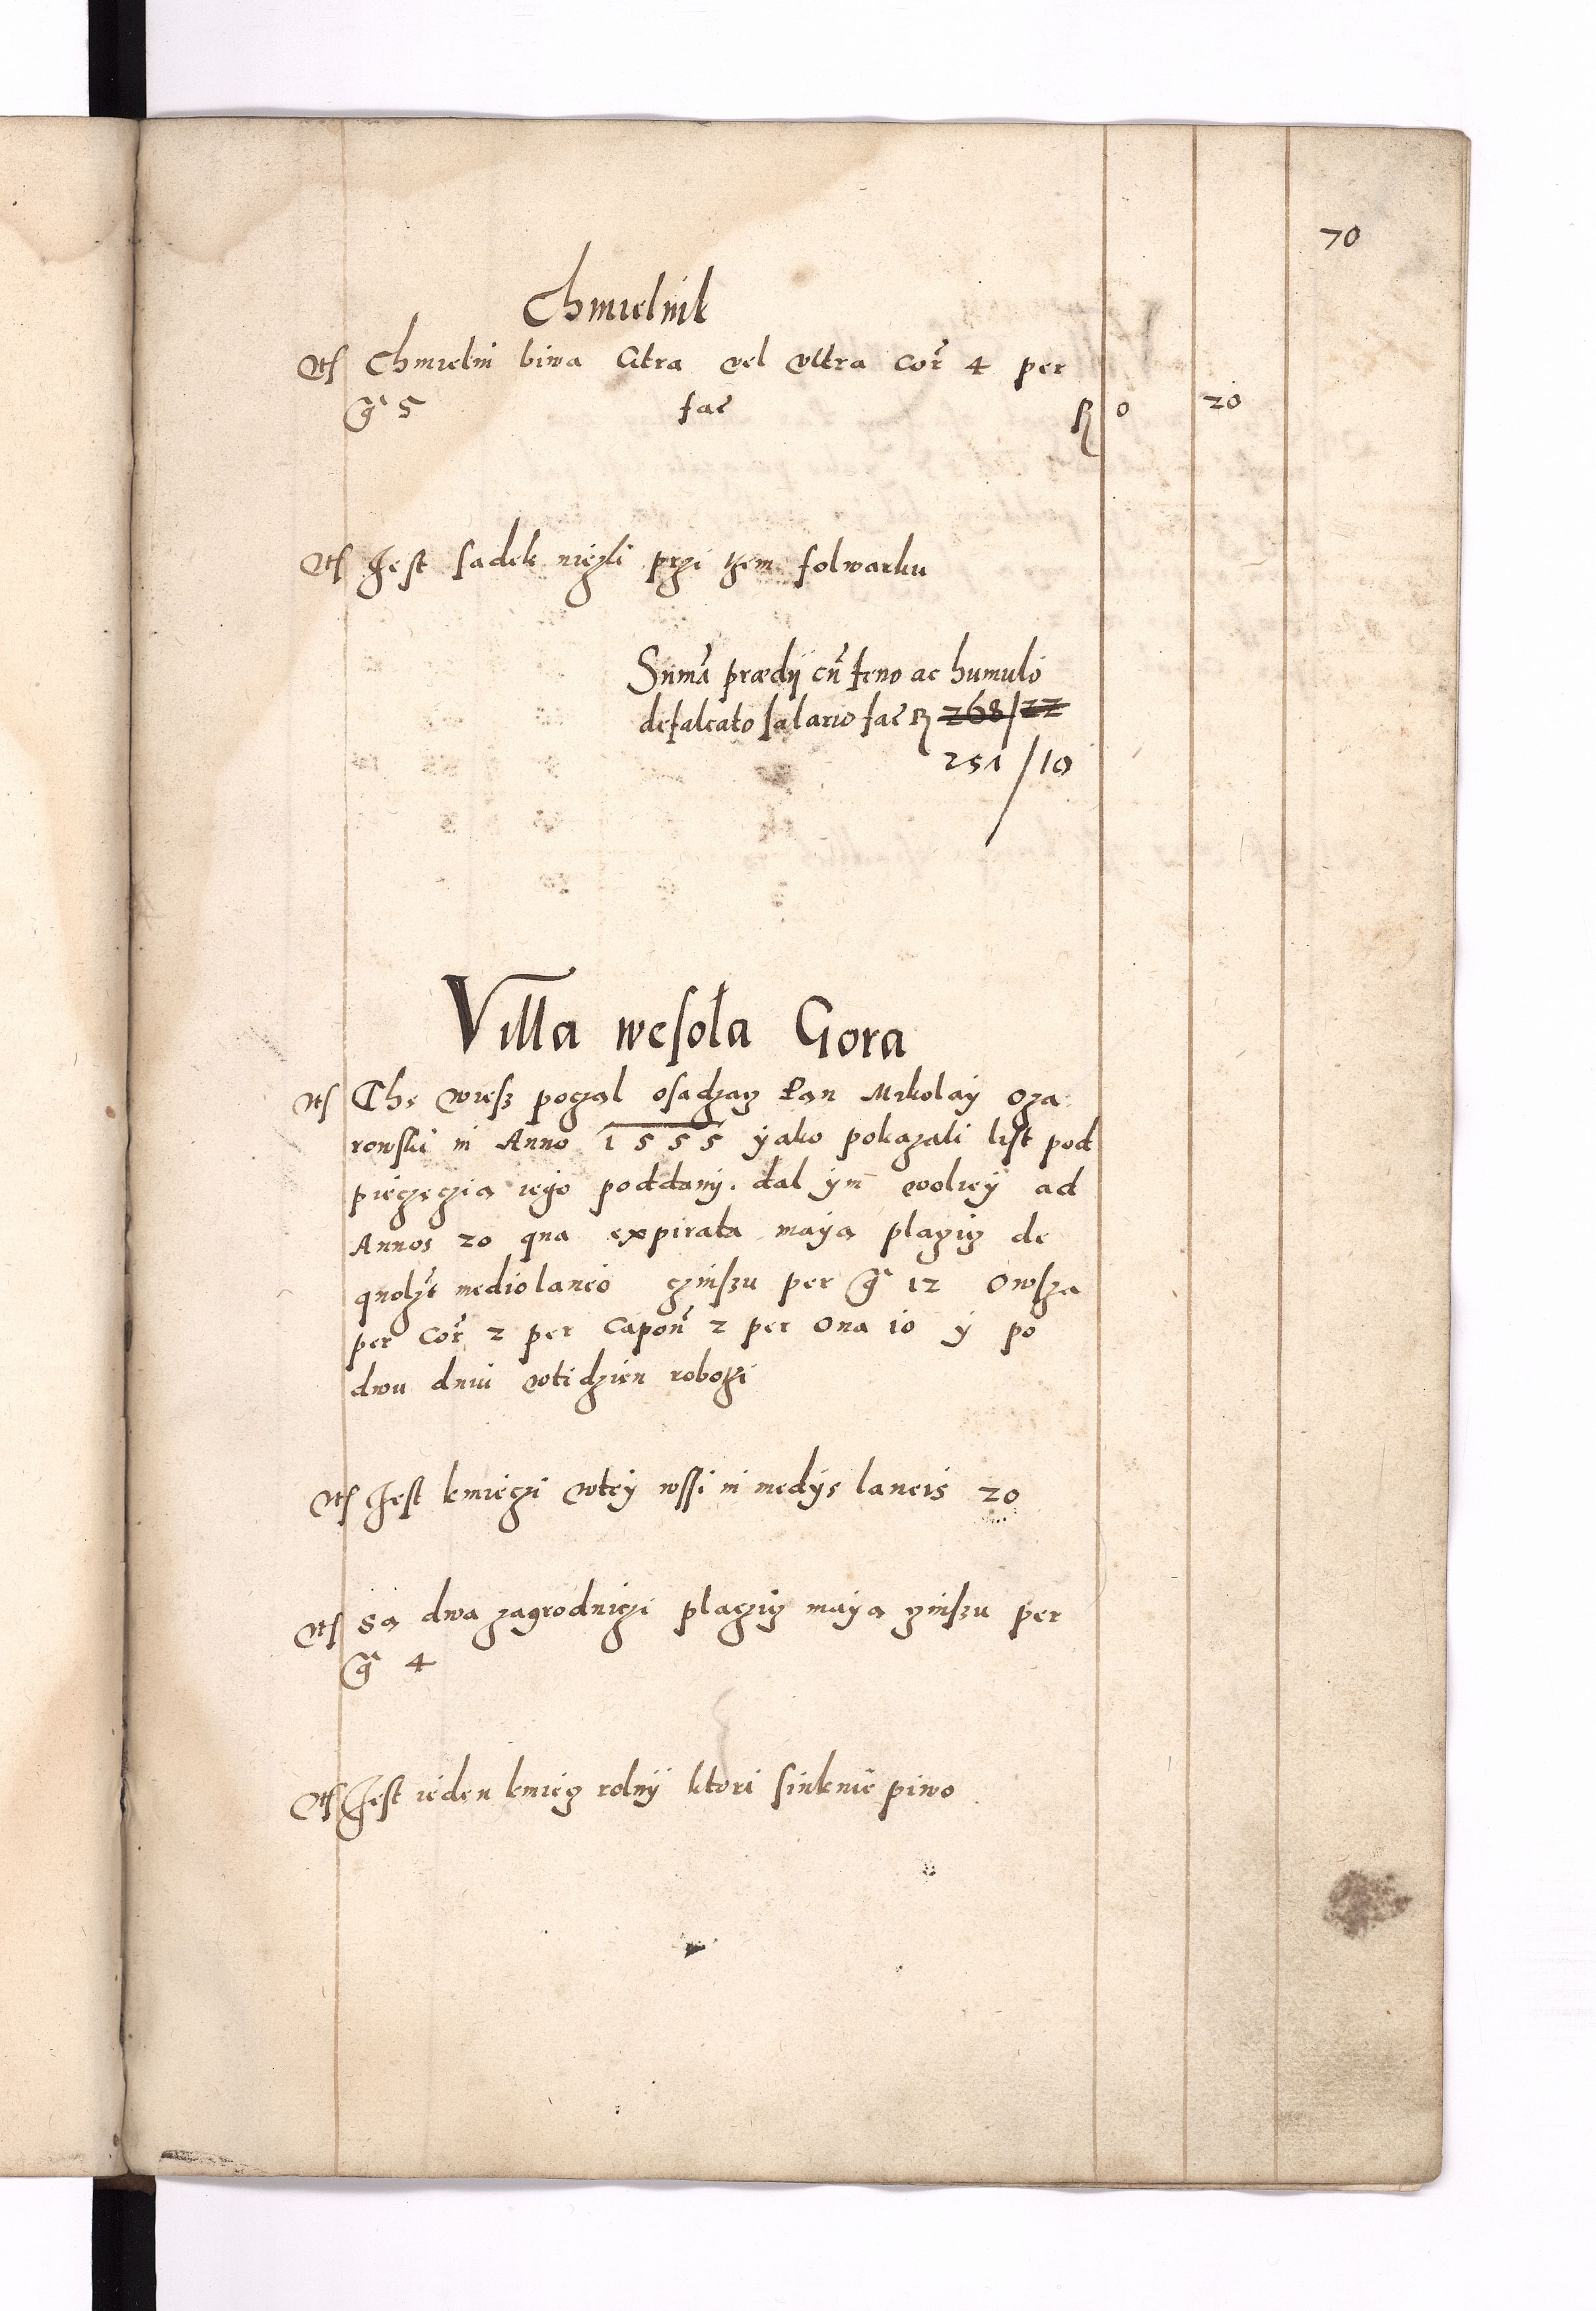 70
Chmielnik
Its Chmielni biwa Citra vel vltra Cor̃ 4 per
g̃ 5 fac̃ R 0 20
Its Jest sadek nieʒli prʒi tʒem folwarku
Sum̃a prædij cũ feno ac humulo
defalcato salario fac̃ R 268/22
251/10
Villa wesoła Gora
Its The wiesz poczal osadzacz Pan Mikolaÿ Oza
rowski in Anno 1555 ÿako pokazali list pod
pieczęczia iego poddanÿ. dal ÿm wolieÿ ad
Annos 20 qua expirata maÿa placzicz de
quolʒt mediolaneo czinszu per g̃ 12 Owsza
per Cor̃ 2 per Capoñ 2 per Oua 10 ÿ po
dwu dniu wtidzien roboczi
Its Jest kmieczi wteÿ wssi in medÿs laneis 20
Its Sa dwa zagrodniczi placzicz maÿa czinszu per
g̃ 4
Its Jest ieden kmiecz rolnÿ ktori sinkuie piwo